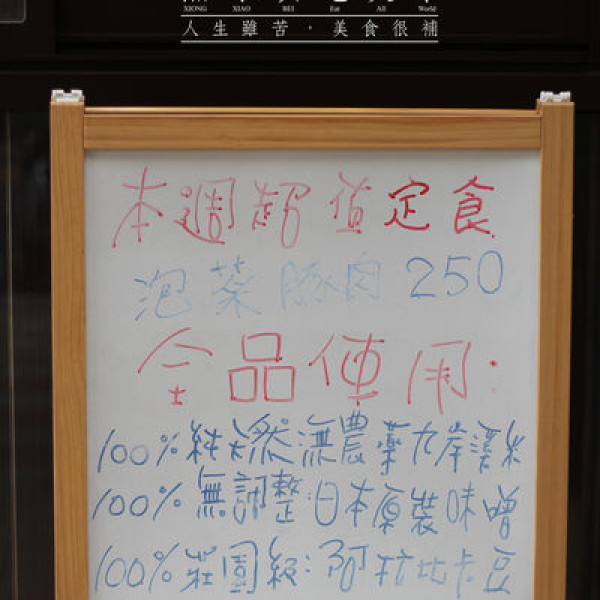 XIONG XIAO BEI Eat All World
人生雖苦，美食很補
本週超值定食
泡菜豚肉 250
全品使用：
100% 純天然無農藥九岸溪米
100% 無調整：日本原裝味噌
100% 莊園級：阿拉比卡豆